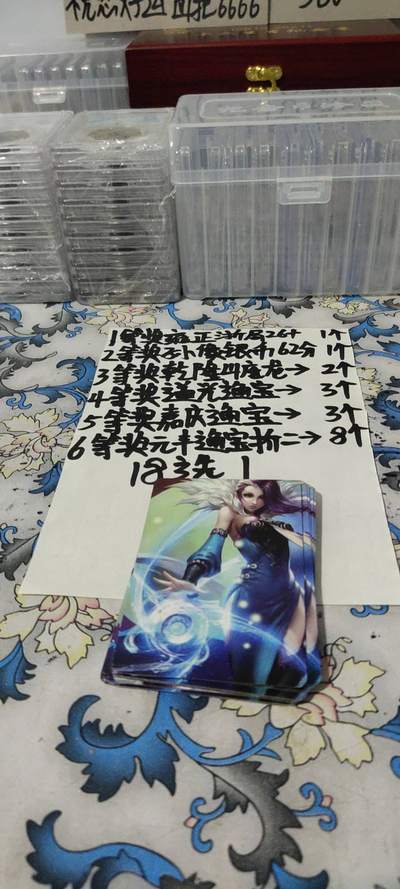 6666
1等奖雍正浙局26+ 1个
2等奖孙像银币62分 1个
3等奖乾隆川库龙→ 2个
4等奖道光通宝→ 3个
5等奖嘉庆通宝→ 3个
6等奖元丰通宝折二→ 8个
18选1